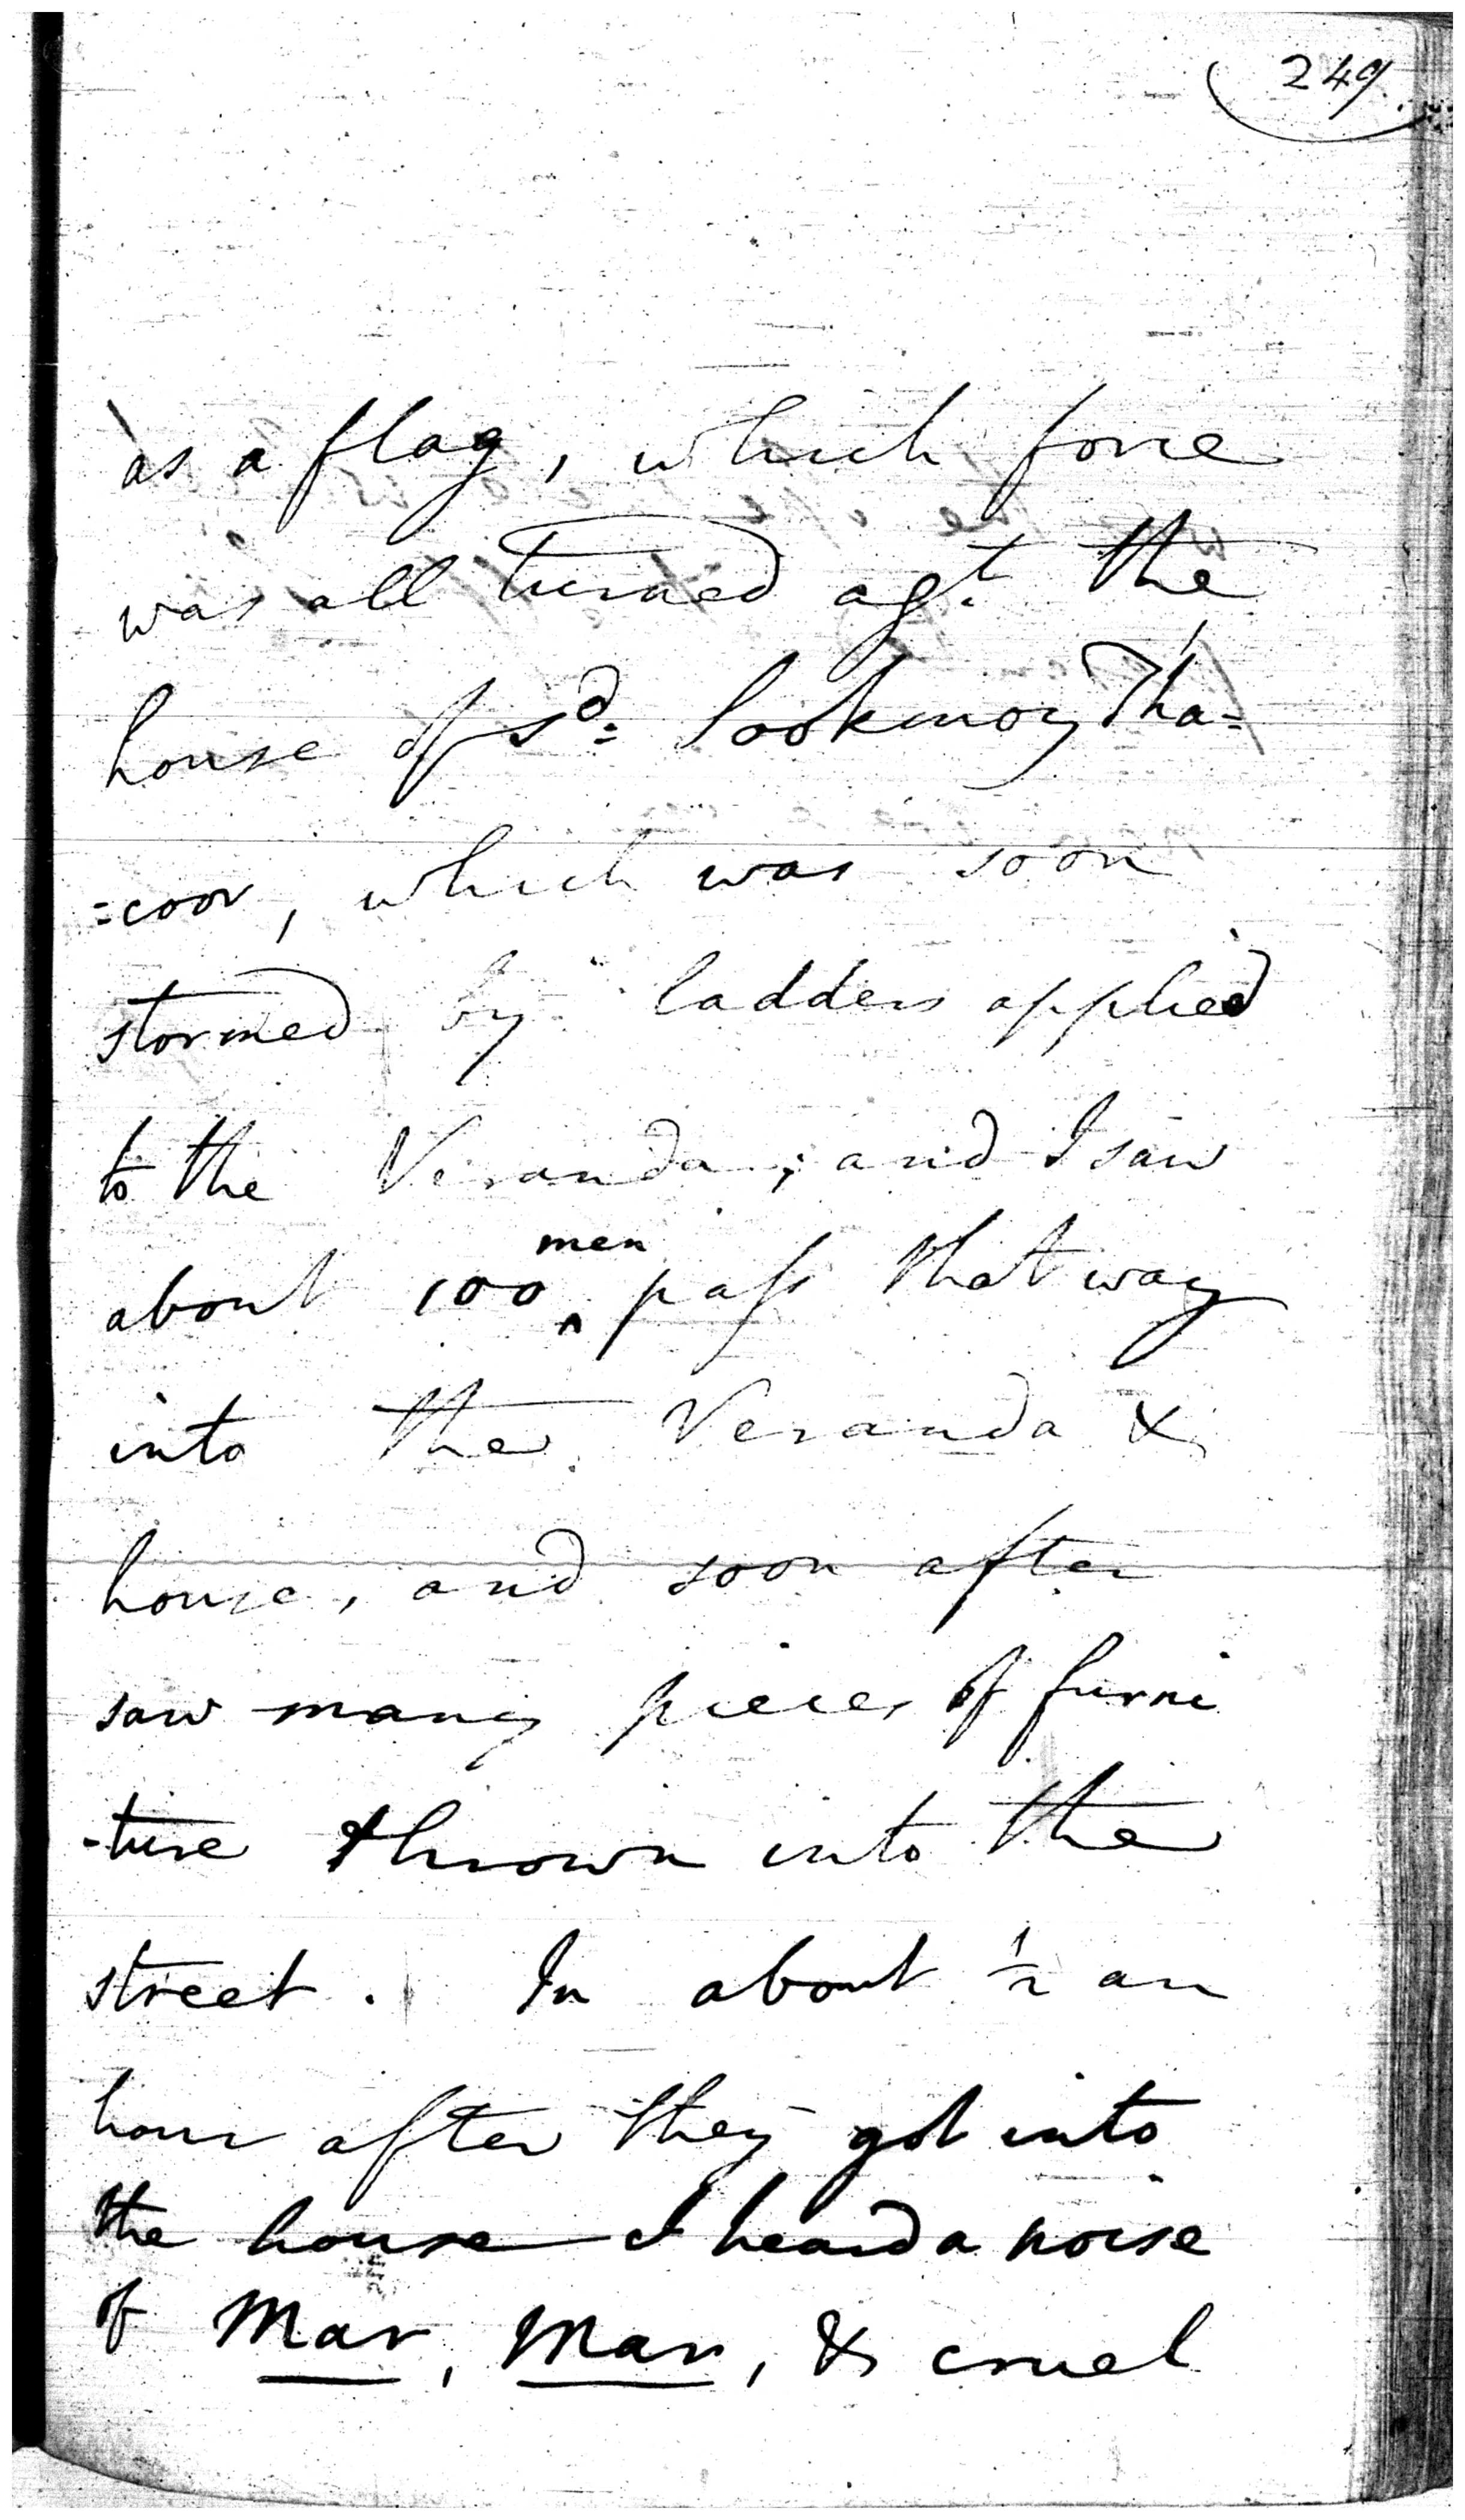 249
as a flag, which force
was all turned agt. the
house of sd= Sookmoy Tha=
=coor, which was soon
stormed by ladders applied
to the Veranda; and I saw
about 100 ^men pass that way
into the Veranda &
house, and soon after
saw many pieces of furni
-ture thrown into the
street. In about ½ an
hour after they got into
the house I heard a noise
of Mar, Mar, & cruel